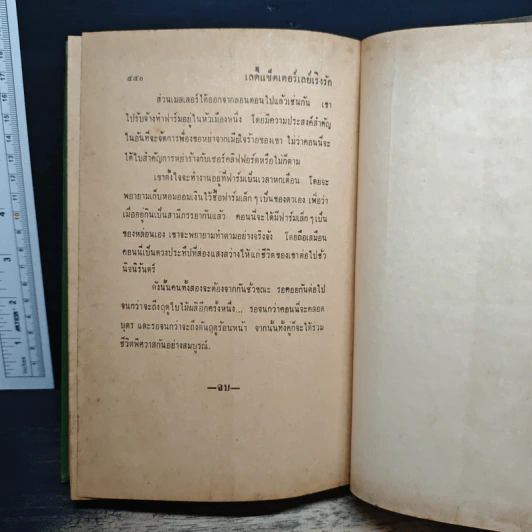 ๔๕๐ เลดี้แช็ตเตอร์เลย์เริงรัก
ส่วนเมลเลอร์ได้ออกจากลอนดอนไปแล้วเช่นกัน เขา
ไปรับจ้างทำฟาร์มอยู่ในหัวเมืองหนึ่ง โดยมีความประสงค์สำคัญ
ในอันที่จะจัดการฟ้องขอหย่าจากเมียใจร้ายของเขา ไม่ว่าคอนนี่จะ
ได้ใบสำคัญการหย่าร้างกับเซอร์คลิฟฟอร์ดหรือไม่ก็ตาม
เขาตั้งใจจะทำงานอยู่ที่ฟาร์มเป็นเวลาหกเดือน โดยจะ
พยายามเก็บหอมออมเงินไว้ซื้อฟาร์มเล็กๆ เป็นของตัวเอง เพื่อว่า
เมื่ออยู่กินเป็นสามีภรรยากันแล้ว คอนนี่จะได้มีฟาร์มเล็กๆ เป็น
ของหล่อนเอง เขาจะพยายามทำตามอย่างจริงจัง โดยถือเสมือน
คอนนี่เป็นดวงประทีปที่ส่องแสงสว่างให้แก่ชีวิตของเขาต่อไปชั่ว
นิจนิรันดร์
ดังนั้นคนทั้งสองจะต้องจากกันชั่วขณะ รอคอยกันต่อไป
จนกว่าจะถึงฤดูใบไม้ผลิอีกครั้งหนึ่ง... รอจนกว่าคอนนี่จะคลอด
บุตร และรอจนกว่าจะถึงต้นฤดูร้อนหน้า จากนั้นทั้งคู่ก็จะได้ร่วม
ชีวิตพิศวาสกันอย่างสมบูรณ์.
—จบ—